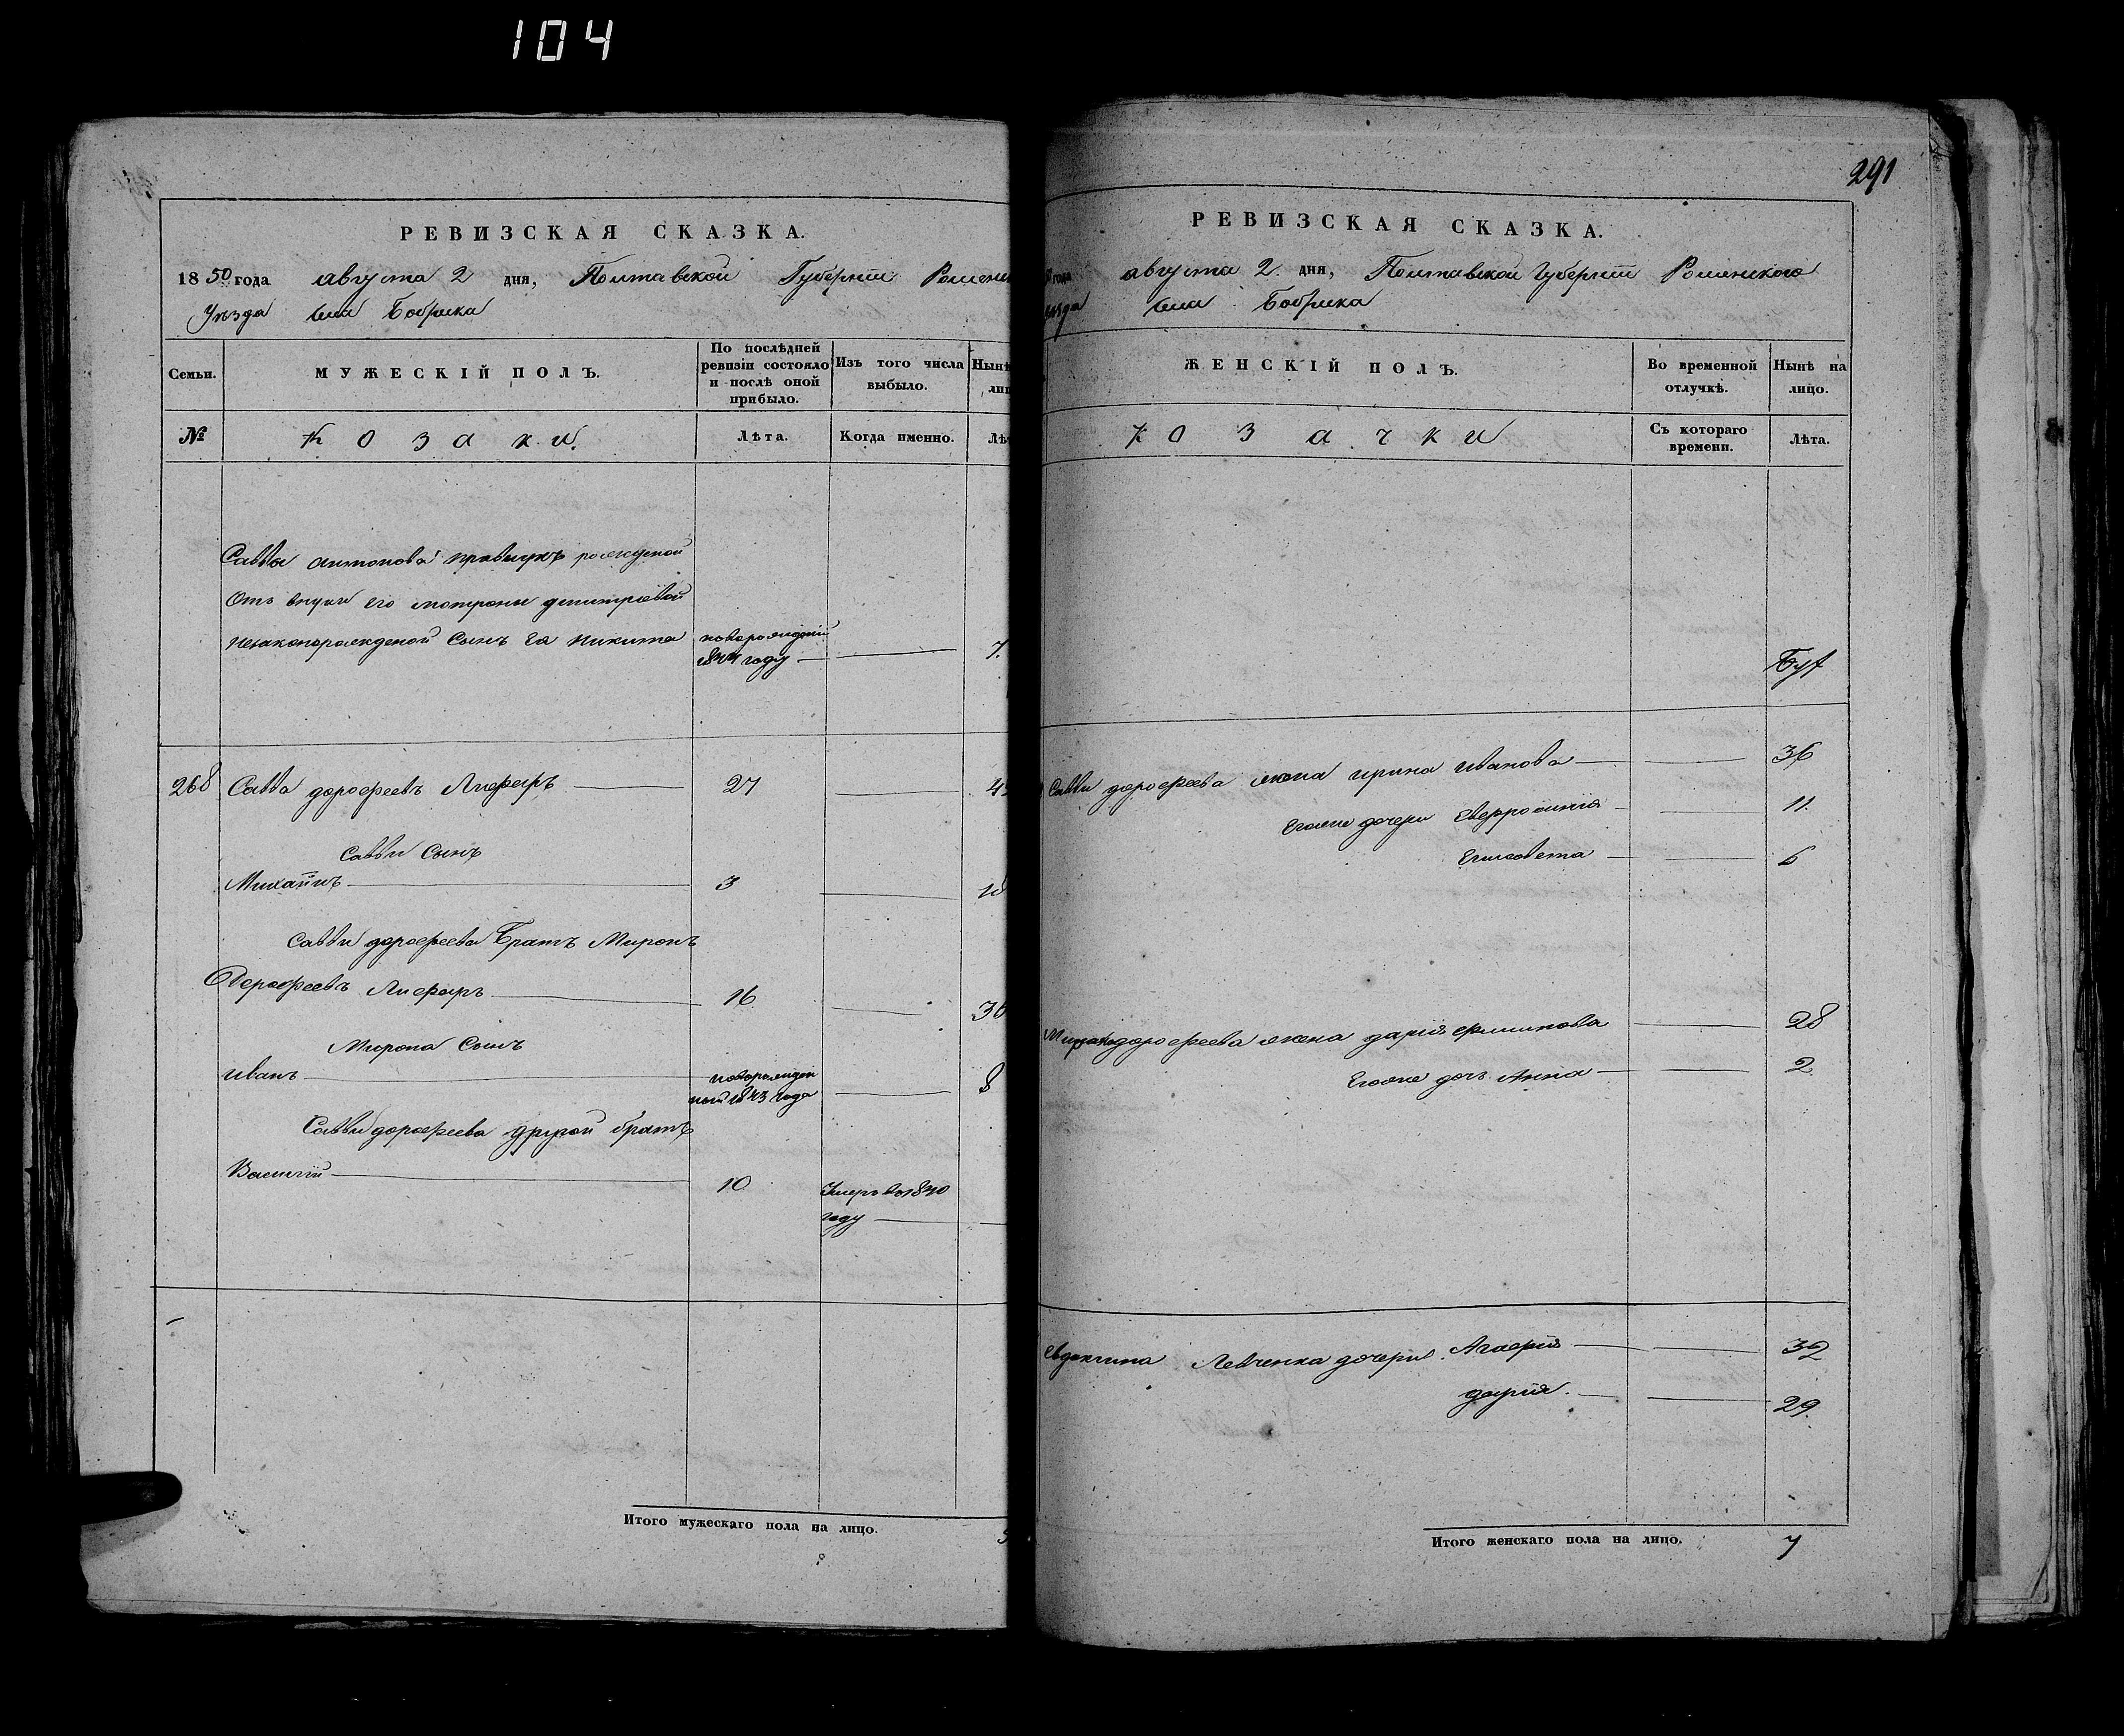 104
РЕВИЗСКАЯ СКАЗКА.
1850 года августа 2 дня, Полтавской Губернiи Роменс
Уѣзда села Бобрика
Семьи.
МУЖЕСКІЙ ПОЛЪ.
По послѣдней ревизіи состояло и послѣ оной прибыло.
Изъ того числа выбыло.
Нынѣ
лиц
№
Козаки.
Лѣта.
Когда именно.
Лѣ
Саввы антонова правнукъ рожденой
Отъ внуки его мотроны дмитровой
незаконорожденой Сынъ ея никита
новорожденій
1844 году
7.
268 Савва дорофеевъ Лифаръ 27 4
Савви Сынъ
Михаилъ 3 18
Савви дорофеева Братъ Миронъ
Дорофеевъ Лифаръ 16 3
Мирона Сынъ
иванъ
новорожден
ный 1843 года
8
Савви дорофеева другой братъ
Василій 10
Умеръ въ 1840
году
Итого мужескаго пола на лицо.
291
РЕВИЗСКАЯ СКАЗКА.
года августа 2 дня, Полтавской Губернiи Роменского
уѣзда села Бобрика
ЖЕНСКІЙ ПОЛЪ.
Во временной отлучкѣ.
Нынѣ на лицо.
Козачки
Съ котораго времени.
Лѣта.
Савви дорофеева жена ирина иванова 36
Егоже дочери Евфросинія 11.
Елисавета 6
Мирона дорофеева жена дарія филипова 28
Егоже дочь Анна 2
Левченка дочери Агафія 32
дарія. 29.
Итого женскаго пола на лицо. 7